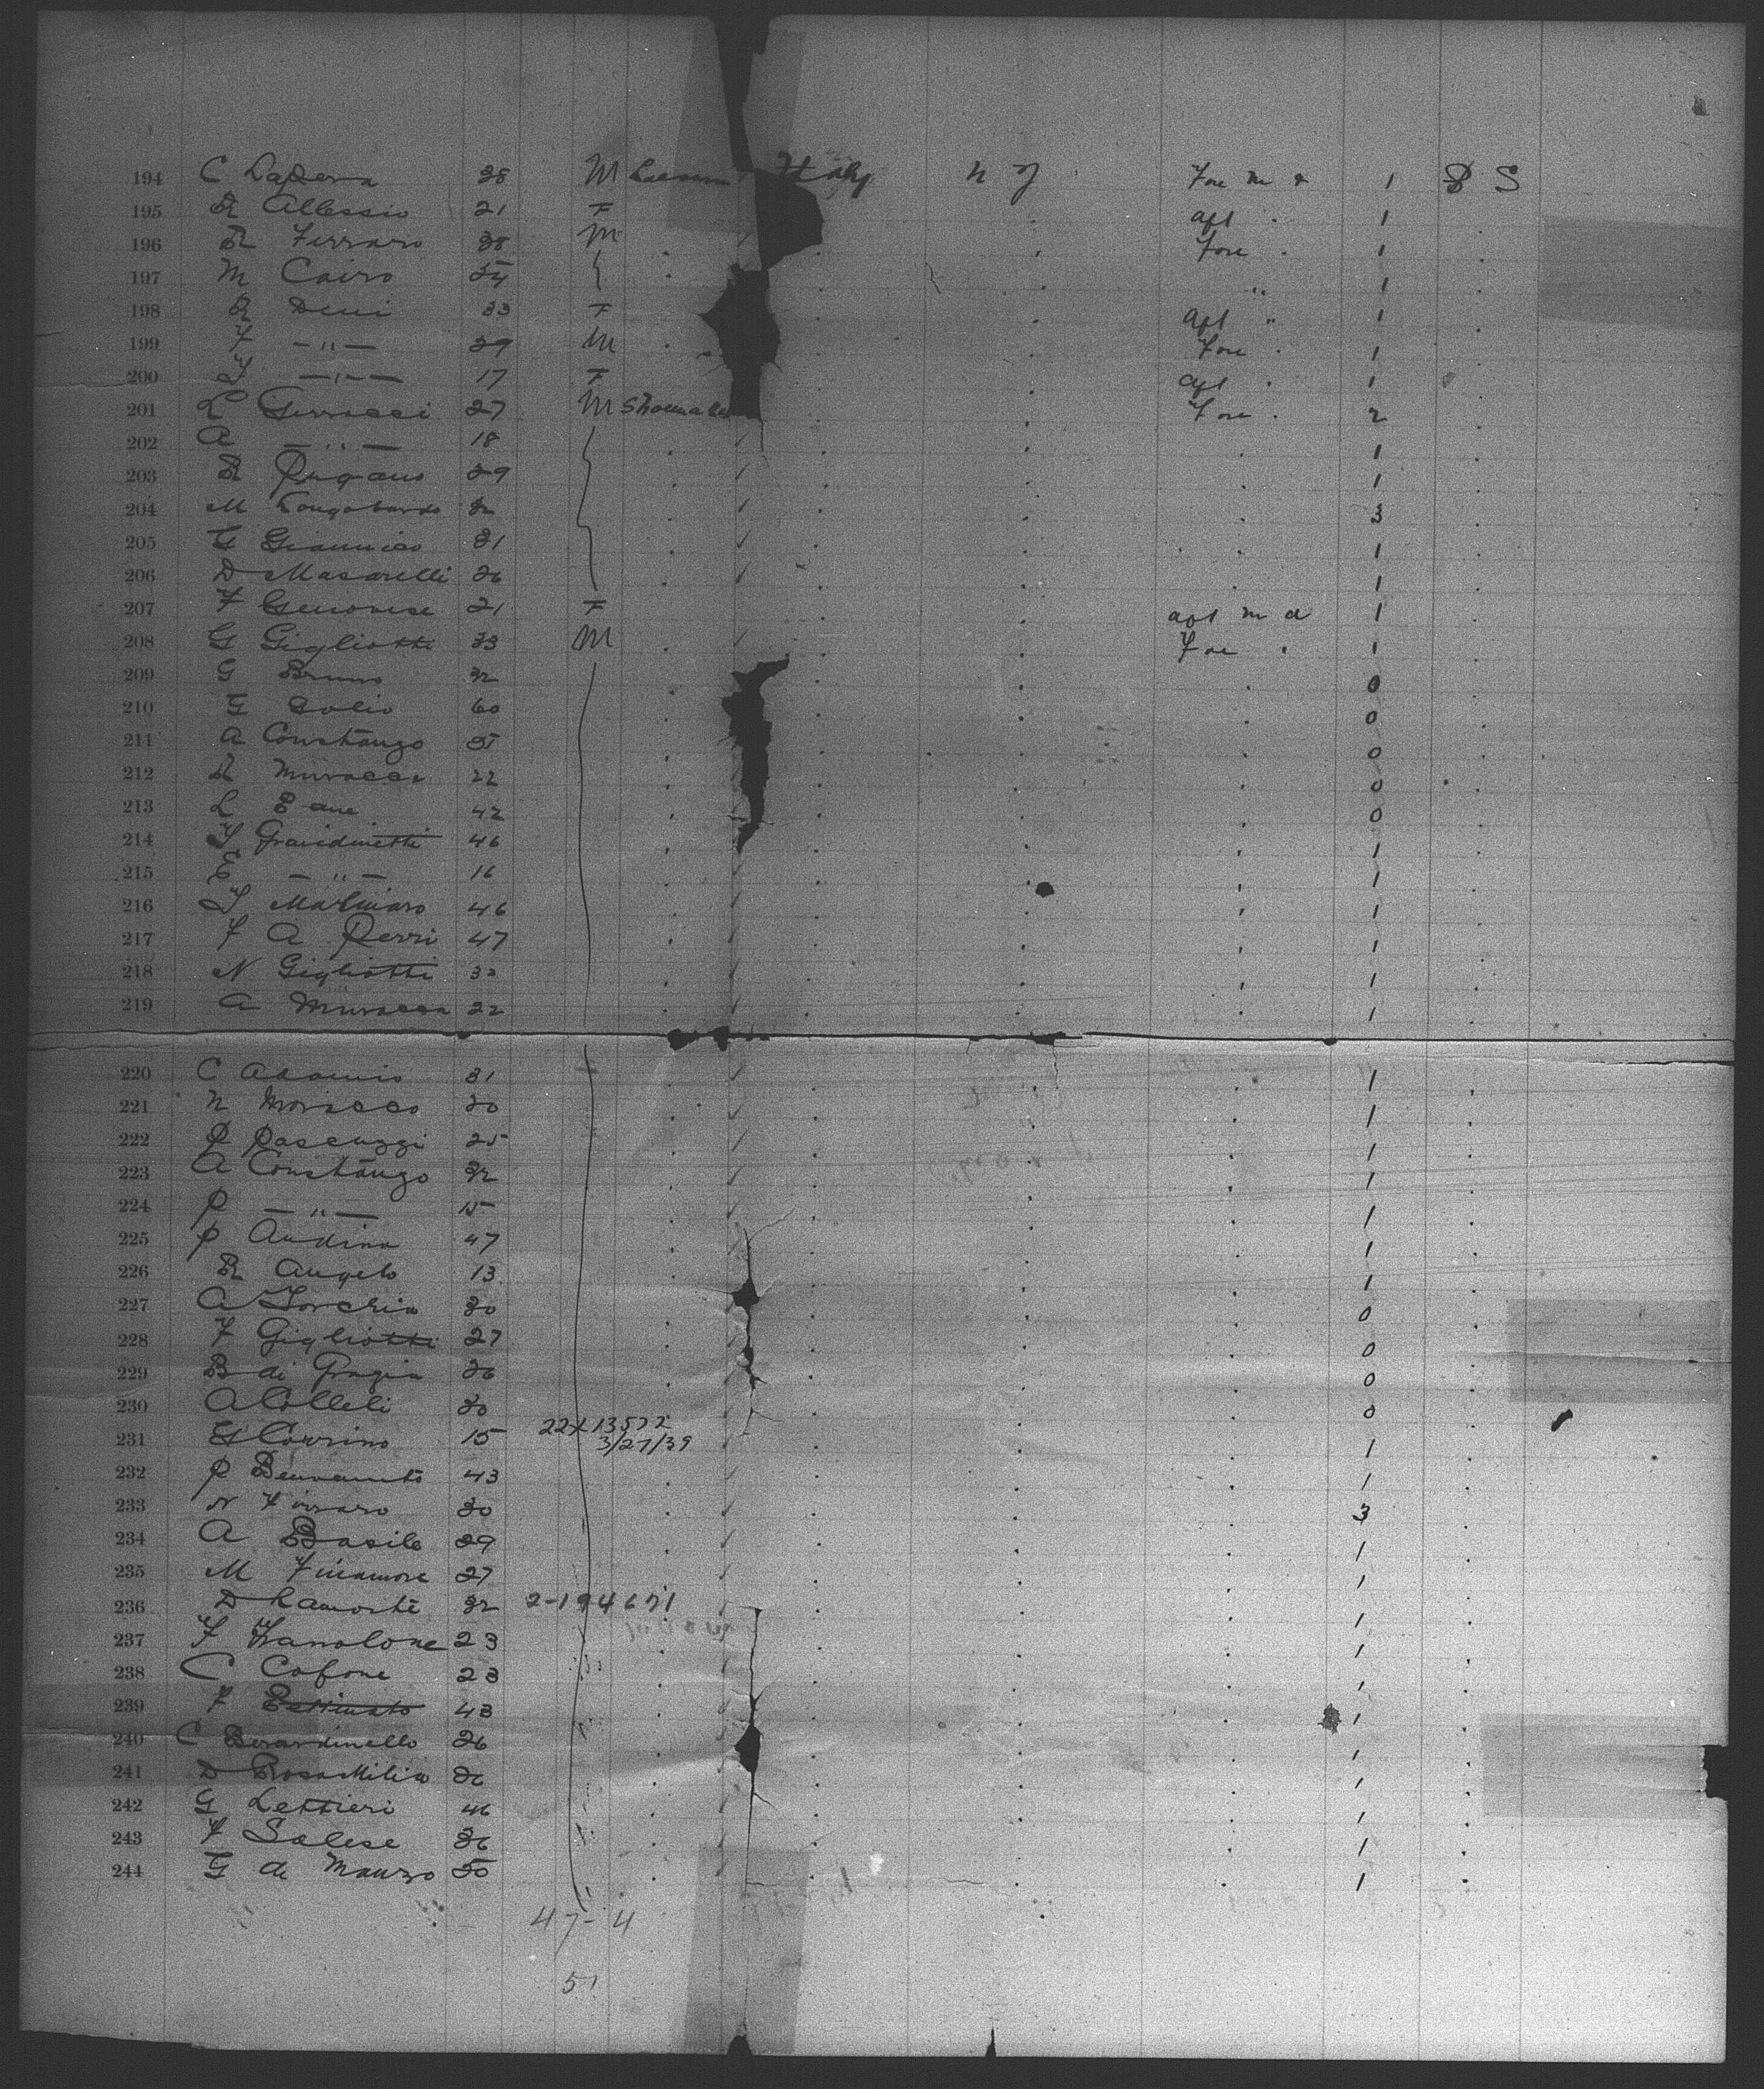 194 C Lapera 38 M Italy N Y Fore 1 S S
195 R Allessio 21 F aft 1
196 R Ferraro 38 M Fore 1
197 M Cairo 54 " 1
198 R Deni 33 F aft " 1
199 F — " — 29 M Fore 1
200 F — " — 17 F aft 1
201 L 27 M Shoemaker Fore 2
202 A — " — 18 1
203 R 29 1
204 M Longobardo 32 3
205 G Giannico 31 1
206 D Masarelli 26 1
207 F Genovese 21 F aft 1
208 G Gigliotti 33 M Fore 1
209 G Bruno 32 0
210 G Golio 60 0
211 A Constanzo 0
212 R Muracca 22 0
213 L 42 0
214 F 46 1
215 E — " — 16 1
216 F 46 1
217 F A Perri 47 1
218 N Gigliotti 1
219 A Muracca 22 1
220 C Adamis 31 1
221 N 1
222 P Pascuzzi 25 1
223 A Constanzo 32 1
224 P — " — 15 1
225 P Audino 47 1
226 R Angelo 13 1
227 A Torchia 30 0
228 F Gigliotti 27 0
229 B di Grazia 26 0
230 A Colleli 30 0
231 G Corrino 15 22X13572 1
3/27/39
232 P Benvenuto 43 1
233 N Ferraro 30 3
234 A Basile 29 1
235 M Finamore 27 1
236 D Lamorte 32 2-194671 1
237 F 23 1
238 C Cofone 23 1
239 F Bettinato 43 1
240 C Berardinello 26 1
241 D RosaMilia 26 1
242 G Lettieri 46 1
243 F Salese 36 1
244 G de Manzo 50 1
47-4
51